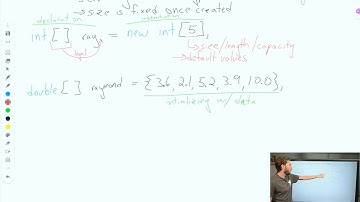 → size is fixed once created
declaration
int [ ] ray = new int [5];
→ size/length/capacity
→ default values
double [ ] raymond = {3.6, 2.1, 5.2, 3.9, 10.0};
initializing w/ data